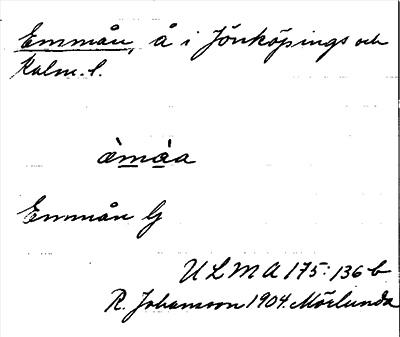 Emmån, å i Jönköpings och
Kalm. l.
èmàa
Emmån G
ULMA 175:136 b
R. Johansson 1904. Mörlunda